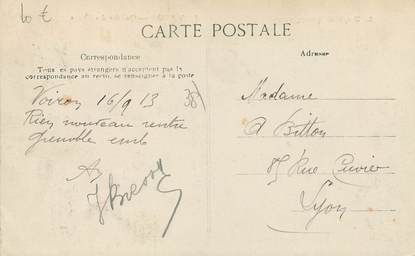 10 €
CARTE POSTALE
Correspondance
Tous les pays étrangers n'acceptent pas la
correspondance au recto, se renseigner à la poste
Voiron 16/9 13
38
Rien nouveau rentre
Grenoble
Adresse
Madame
A Bitton
85 Rue Cuvier
Lyon